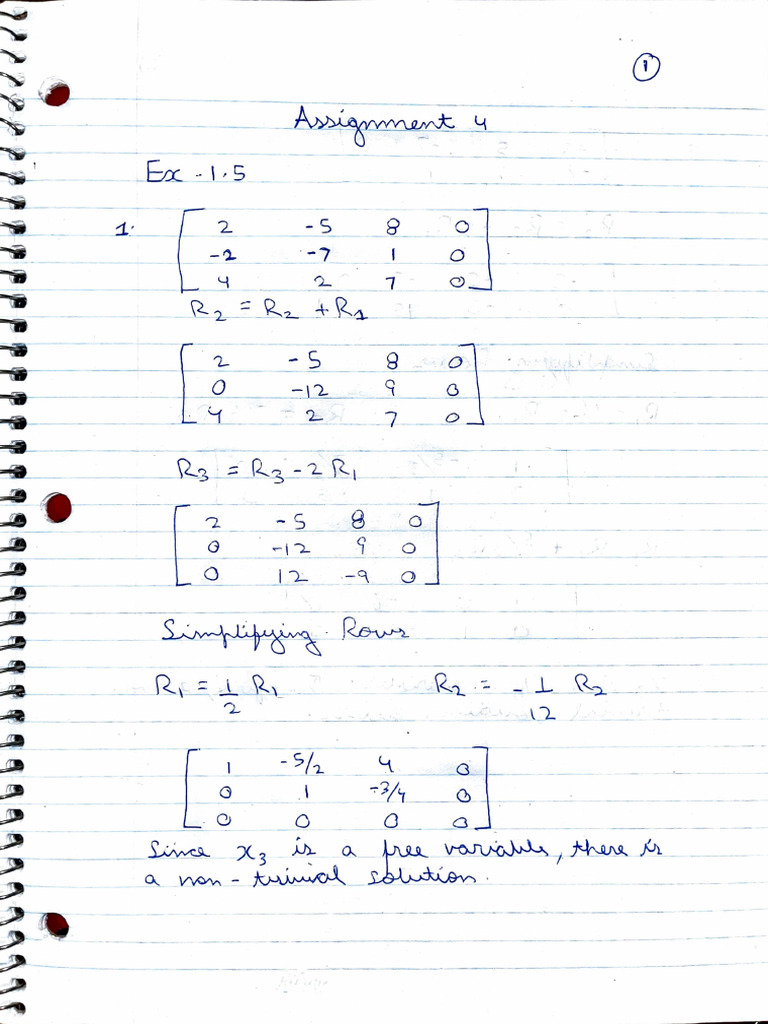 1
Assignment 4
Ex - 1.5
1. [ 2 -5 8 0
-2 -7 1 0
4 2 7 0 ]
R2 = R2 + R1
[ 2 -5 8 0
0 -12 9 0
4 2 7 0 ]
R3 = R3 - 2 R1
[ 2 -5 8 0
0 -12 9 0
0 12 -9 0 ]
Simplifying Rows
R1 = 1/2 R1 R2 = - 1/12 R2
[ 1 -5/2 4 0
0 1 -3/4 0
0 0 0 0 ]
Since x3 is a free variable, there is
a non-trivial solution.